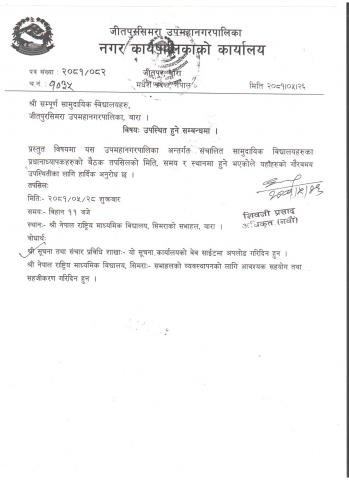 जीतपुरसिमरा उपमहानगरपालिका
नगर कार्यपालिकाको कार्यालय
पत्र संख्या : २०८१/०८२
जीतपुर, बारा
च.नं. : १०३५
मधेश प्रदेश, नेपाल
मिति २०८१।०५।२६
श्री सम्पूर्ण सामुदायिक विद्यालयहरु,
जीतपुरसिमरा उपमहानगरपालिका, बारा ।
विषयः उपस्थित हुने सम्बन्धमा ।
प्रस्तुत विषयमा यस उपमहानगरपालिका अन्तर्गत संचालित सामुदायिक विद्यालयहरुका
प्रधानाध्यापकहरुको बैठक तपसिलको मिति, समय र स्थानमा हुने भएकोले यहाँहरुको गौरबमय
उपस्थितीका लागि हार्दिक अनुरोध छ ।
तपसिलः
मितिः- २०८१/०५/२८ शुक्रबार
समयः- बिहान ११ बजे
स्थानः- श्री नेपाल राष्ट्रिय माध्यमिक विद्यालय, सिमराको सभाहल, बारा ।
२०८१/५/२६
शिवजी प्रसाद
अधिकृत (नवौं)
बोधार्थः
श्री सूचना तथा संचार प्रबिधि शाखाः- यो सूचना कार्यालयको बेब साईटमा अपलोड गरिदिन हुन ।
श्री नेपाल राष्ट्रिय माध्यमिक विद्यालय, सिमराः- सभाहलको व्यवस्थापनको लागि आवश्यक सहयोग तथा
सहजीकरण गरिदिन हुन ।